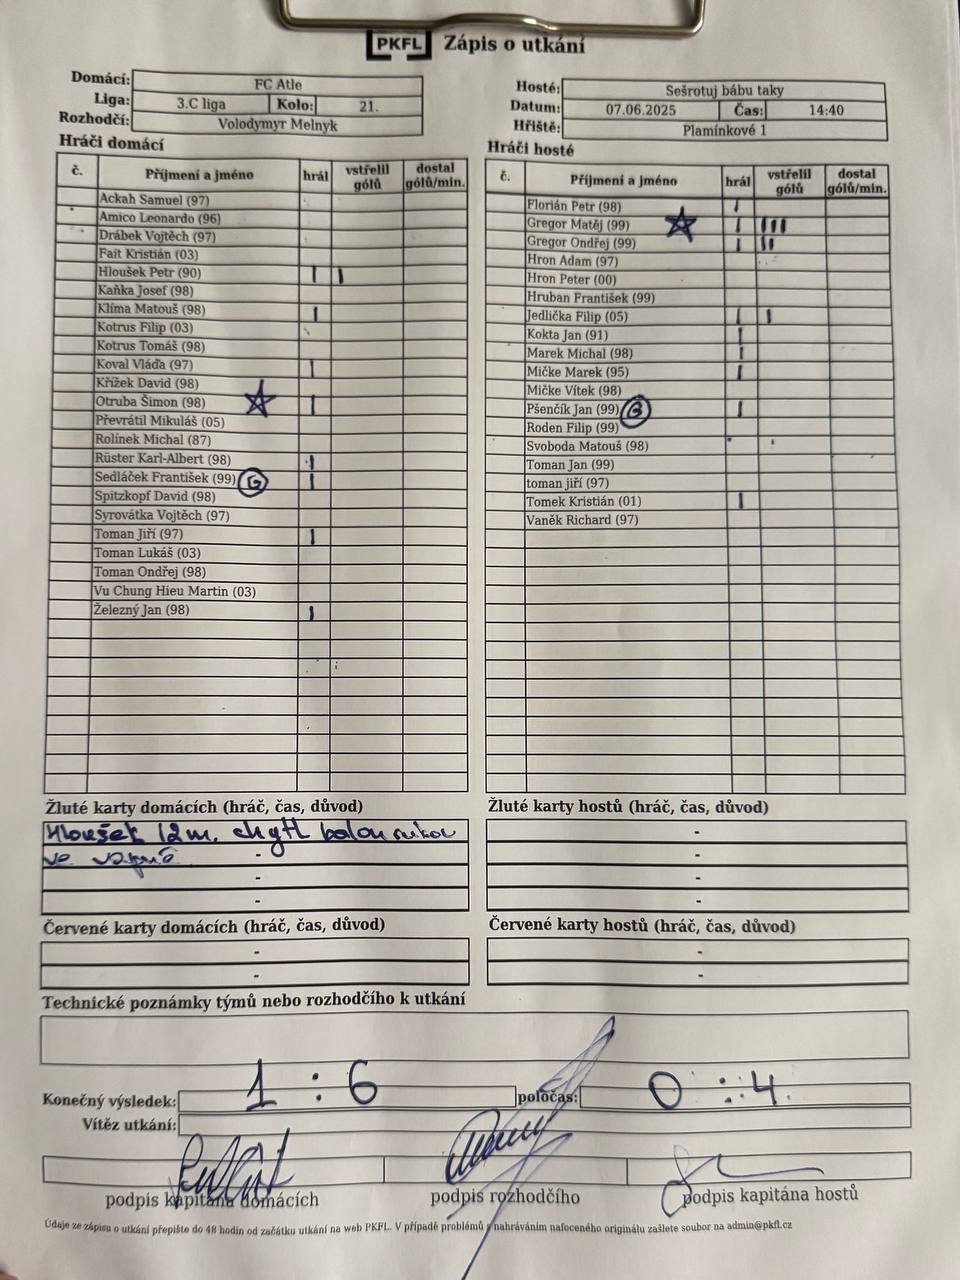 PKFL Zápis o utkání
Domácí: FC Atle
Liga: 3.C liga Kolo: 21.
Rozhodčí: Volodymyr Melnyk
Hosté: Sešrotuj bábu taky
Datum: 07.06.2025 Čas: 14:40
Hřiště: Plamínkové 1
Hráči domácí
č. Příjmení a jméno hrál vstřelil gólů dostal gólů/min.
Ackah Samuel (97)
Amico Leonardo (96)
Drábek Vojtěch (97)
Fait Kristián (03)
Hloušek Petr (90) I I
Kaňka Josef (98)
Klíma Matouš (98) I
Kotrus Filip (03)
Kotrus Tomáš (98)
Koval Vláďa (97) I
Křížek David (98)
Otruba Šimon (98) I
Převrátil Mikuláš (05)
Rolínek Michal (87)
Rüster Karl-Albert (98) I
Sedláček František (99) G I
Spitzkopf David (98)
Syrovátka Vojtěch (97)
Toman Jiří (97) I
Toman Lukáš (03)
Toman Ondřej (98)
Vu Chung Hieu Martin (03)
Železný Jan (98) I
Hráči hosté
č. Příjmení a jméno hrál vstřelil gólů dostal gólů/min.
Florián Petr (98) I
Gregor Matěj (99) I III
Gregor Ondřej (99) I II
Hron Adam (97)
Hron Peter (00)
Hruban František (99)
Jedlička Filip (05) I I
Kokta Jan (91) I
Marek Michal (98) I
Mičke Marek (95) I
Mičke Vítek (98)
Pšenčík Jan (99) G I
Roden Filip (99)
Svoboda Matouš (98)
Toman Jan (99)
toman jiří (97)
Tomek Kristián (01) I
Vaněk Richard (97)
Žluté karty domácích (hráč, čas, důvod)
Hloušek 12 m. chytl balon rukou
ve
-
-
-
Žluté karty hostů (hráč, čas, důvod)
-
-
-
-
Červené karty domácích (hráč, čas, důvod)
-
-
Červené karty hostů (hráč, čas, důvod)
-
-
Technické poznámky týmů nebo rozhodčího k utkání
Konečný výsledek: 1 : 6 poločas: 0 : 4
Vítěz utkání:
podpis kapitána domácích podpis rozhodčího podpis kapitána hostů
Údaje ze zápisu o utkání přepište do 48 hodin od začátku utkání na web PKFL. V případě problémů s nahráváním nafoceného originálu zašlete soubor na admin@pkfl.cz